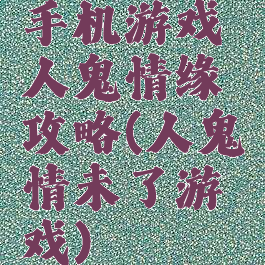 手机游戏
人鬼情缘
攻略(人鬼
情未了游
戏)